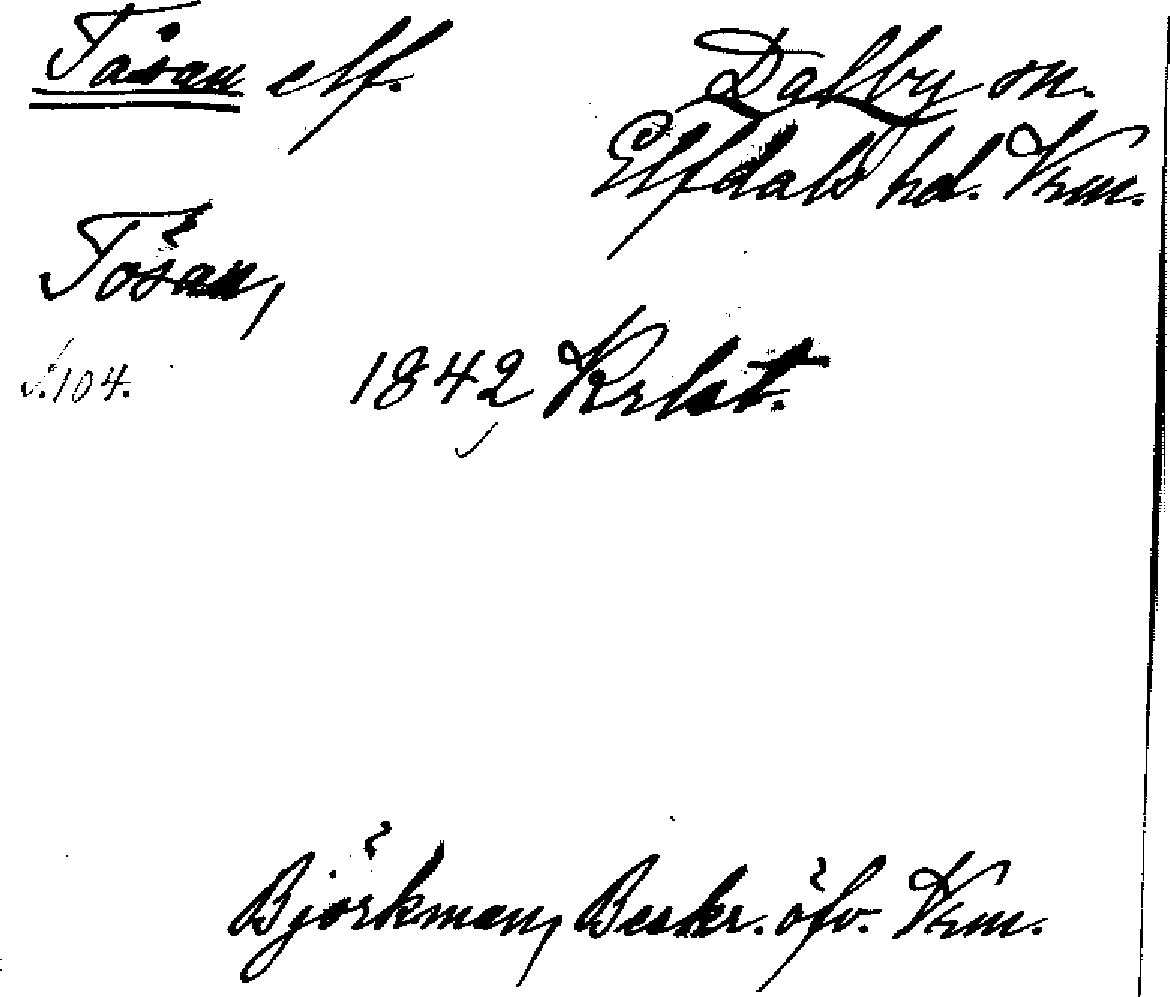 Tåsan elf.
Dalby sn.
Elfdals hd. Vrm.
Tösan,
s. 104.
1842, Krlst.
Björkman, Beskr. öfv. Vrm.